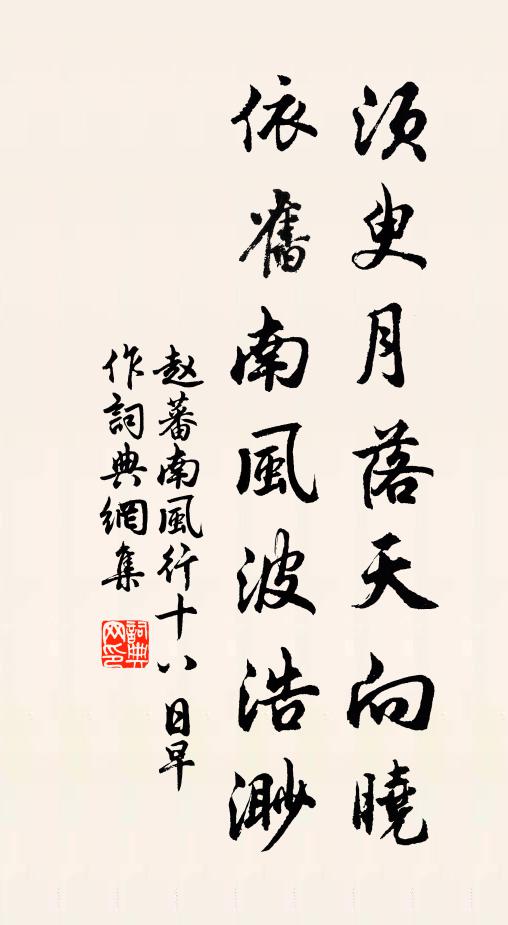 須臾月落天向曉
依舊南風波浩渺
趙蕃南風行十八日早
作詞典網集
詞典網印